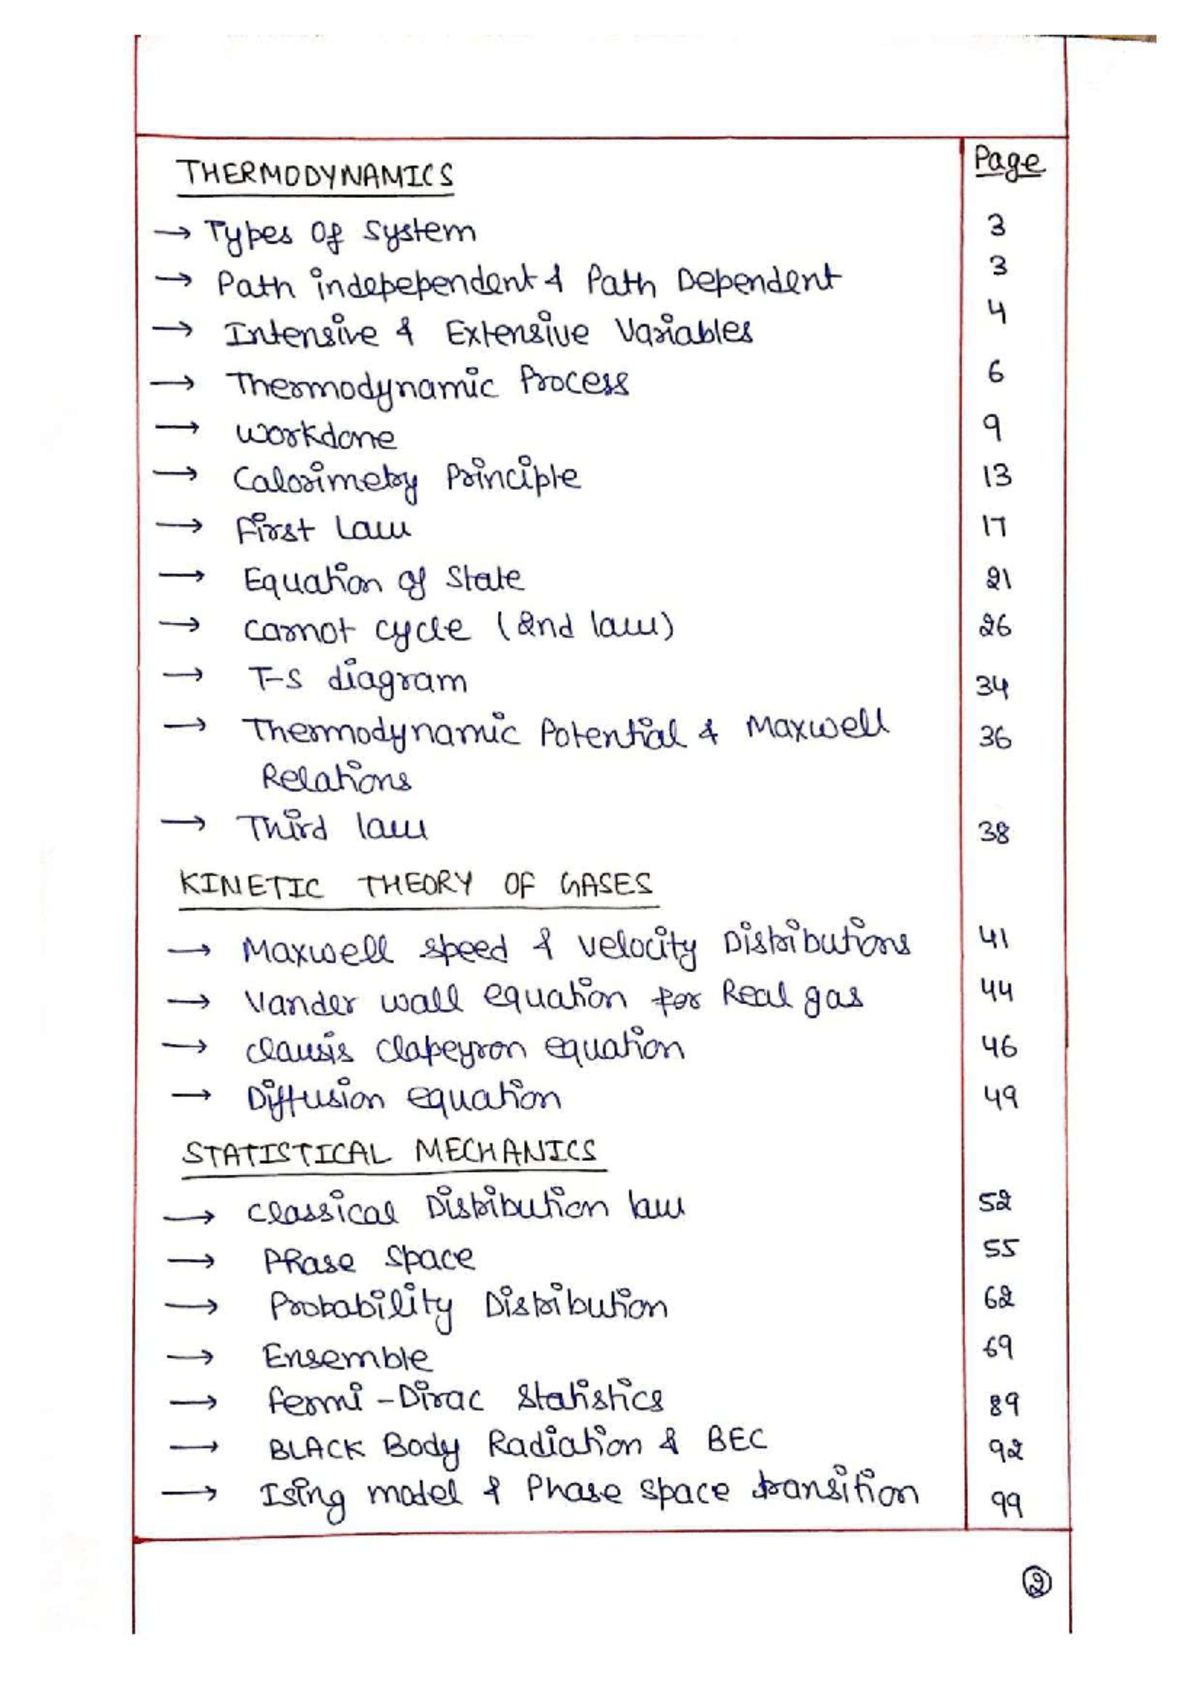 THERMODYNAMICS Page
→ Types of System 3
→ Path indepependent & Path Dependent 3
→ Intensive & Extensive Variables 4
→ Thermodynamic Process 6
→ Workdone 9
→ Calorimetry Principle 13
→ First Law 17
→ Equation of State 21
→ Carnot cycle (2nd law) 26
→ T-S diagram 34
→ Thermodynamic Potential & Maxwell 36
Relations
→ Third law 38
KINETIC THEORY OF GASES
→ Maxwell speed & velocity Distributions 41
→ Vander wall equation for Real gas 44
→ Clausis Clapeyron equation 46
→ Diffusion equation 49
STATISTICAL MECHANICS
→ Classical Distribution law 52
→ Phase Space 55
→ Probability Distribution 62
→ Ensemble 69
→ Fermi-Dirac Statistics 89
→ BLACK Body Radiation & BEC 92
→ Ising model & Phase space transition 99
2